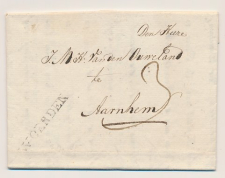 Den Heere
J M H Van den Ouweland
te
Aarnhem
3
WOERDEN